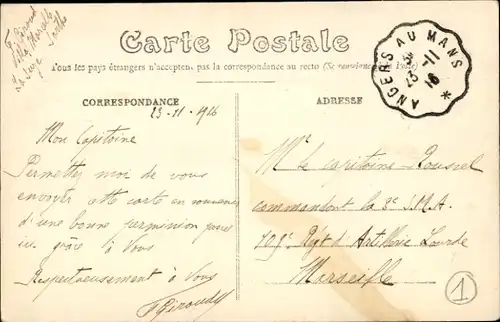 F Giroud
Villa Marcelle
La Suze Sarthe
Carte Postale
Tous les pays étrangers n'acceptent pas la correspondance au recto (Se renseigner à la Poste)
ANGERS AU MANS
3
23 -11
16
CORRESPONDANCE
ADRESSE
23-11-1916
Mon Capitaine
Permettez moi de vous
envoyer cette carte en souvenir
d'une bonne permission passée
ici grâce à Vous
Respectueusement à Vous
F Giroud
Mr le capitaine Roussel
commandant la 8e S.M.A.
109e Régt d'Artillerie Lourde
Marseille
1